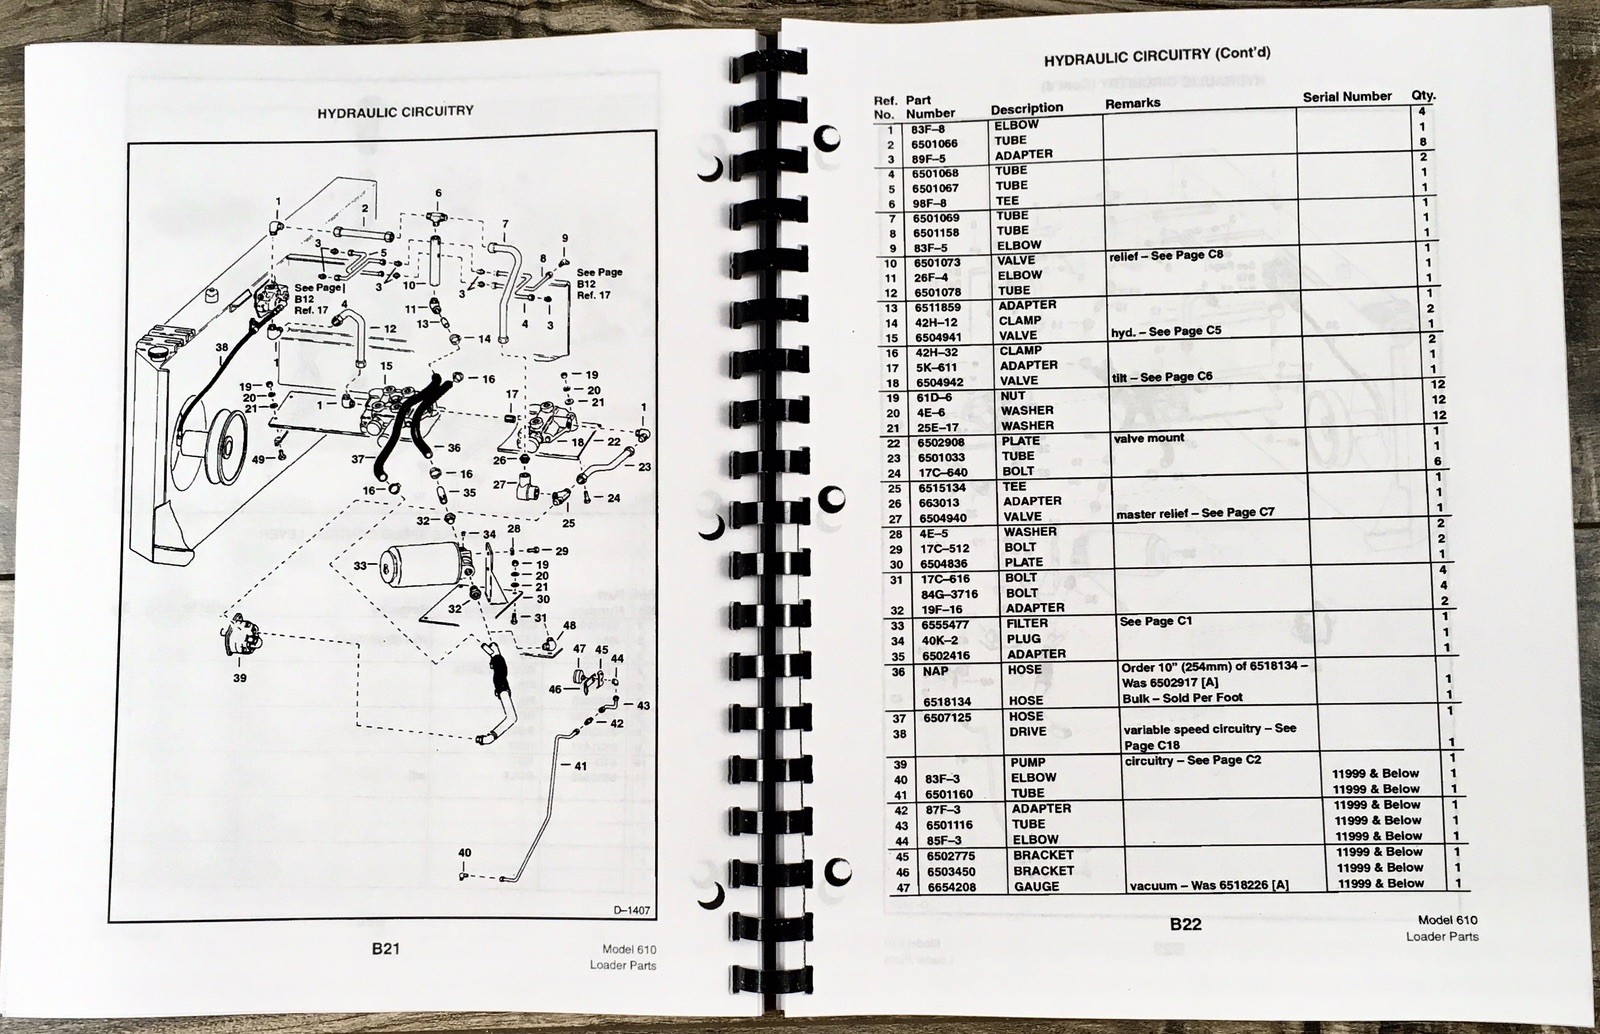 HYDRAULIC CIRCUITRY
1
2
6
7
3
5
9
8
See Page
B12
Ref. 17
See Page
B12
Ref. 17
3
10
3
4
11
4
3
12
13
14
38
1
15
16
19
20
21
19
20
21
17
1
1
18
22
36
37
26
23
49
16
27
16
35
24
25
32
28
34
29
33
19
20
21
32
30
31
48
39
47
45
44
46
43
42
41
40
D–1407
B21
Model 610
Loader Parts
HYDRAULIC CIRCUITRY (Cont'd)
Ref. Part
No. Number Description Remarks Serial Number Qty.
1 83F–8 ELBOW 4
2 6501066 TUBE 1
3 89F–5 ADAPTER 8
4 6501068 TUBE 2
5 6501067 TUBE 1
6 98F–8 TEE 1
7 6501069 TUBE 1
8 6501158 TUBE 1
9 83F–5 ELBOW 1
10 6501073 VALVE relief – See Page C8 1
11 26F–4 ELBOW 1
12 6501078 TUBE 1
13 6511859 ADAPTER 1
14 42H–12 CLAMP 2
15 6504941 VALVE hyd. – See Page C5 1
16 42H–32 CLAMP 2
17 5K–611 ADAPTER 1
18 6504942 VALVE tilt – See Page C6 1
19 61D–6 NUT 12
20 4E–6 WASHER 12
21 25E–17 WASHER 12
22 6502908 PLATE valve mount 1
23 6501033 TUBE 1
24 17C–640 BOLT 6
25 6515134 TEE 1
26 663013 ADAPTER 1
27 6504940 VALVE master relief – See Page C7 1
28 4E–5 WASHER 2
29 17C–512 BOLT 2
30 6504836 PLATE 1
31 17C–616 BOLT 4
84G–3716 BOLT 4
32 19F–16 ADAPTER 2
33 6555477 FILTER See Page C1 1
34 40K–2 PLUG 1
35 6502416 ADAPTER 1
36 NAP HOSE Order 10" (254mm) of 6518134 –
Was 6502917 [A] 1
6518134 HOSE Bulk – Sold Per Foot 1
37 6507125 HOSE 1
38 DRIVE variable speed circuitry – See
Page C18 1
39 PUMP circuitry – See Page C2 1
40 83F–3 ELBOW 11999 & Below 1
41 6501160 TUBE 11999 & Below 1
42 87F–3 ADAPTER 11999 & Below 1
43 6501116 TUBE 11999 & Below 1
44 85F–3 ELBOW 11999 & Below 1
45 6502775 BRACKET 11999 & Below 1
46 6503450 BRACKET 11999 & Below 1
47 6654208 GAUGE vacuum – Was 6518226 [A] 11999 & Below 1
B22
Model 610
Loader Parts